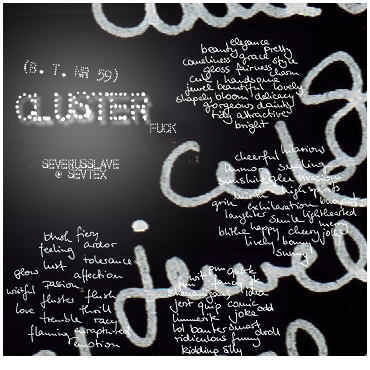 (B. T. NR 59)
CLUSTER
FUCK
SEVERUSSLAVE
@ SEVTEX
elegance
beauty pretty
comeliness grace style
gloss fairness charm
cute handsome
jewel beautiful lovely
shapely bloom delicacy
gorgeous dainty
tidy attractive
bright
cheerful hilarious
humor smiling
sunshine glee vivacious
mirth high spirits
grin exhilaration buoyant
laughter smile lighthearted
blithe happy cheery jolly
merry
lively bonny
sunny
blush fiery
feeling ardor
lust tolerance
glow affection
wistful passion
fluster flush
love thrill
tremble racy
flaming enraptured
emotion
wit pun quirk
fun fancy
shenanigans
jest quip comic
limerick joke odd
lol banter smart
ridiculous funny droll
kidding silly